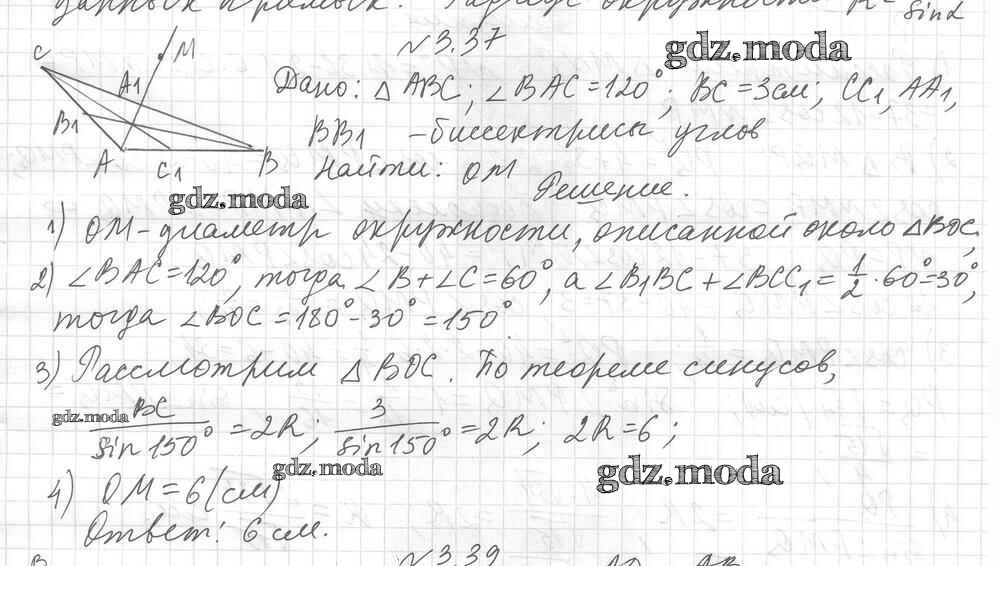 данных прямых. Радиус окружности R = sin α
№3.37
gdz.moda
C
M
A1
B1
A
C1
B
Дано: △ABC; ∠BAC=120°; BC=3см; CC1, AA1,
BB1 -биссектрисы углов
Найти: OM
gdz.moda
Решение.
1) OM-диаметр окружности, описанной около △BOC;
2) ∠BAC=120°, тогда ∠B+∠C=60°, а ∠B1BC+∠BCC1=1/2·60°=30°,
тогда ∠BOC=180°-30°=150°.
3) Рассмотрим △BOC. По теореме синусов,
gdz.moda
BC/sin150°=2R; 3/sin150°=2R; 2R=6;
gdz.moda
gdz.moda
4) OM=6(см)
Ответ: 6 см.
№3.39